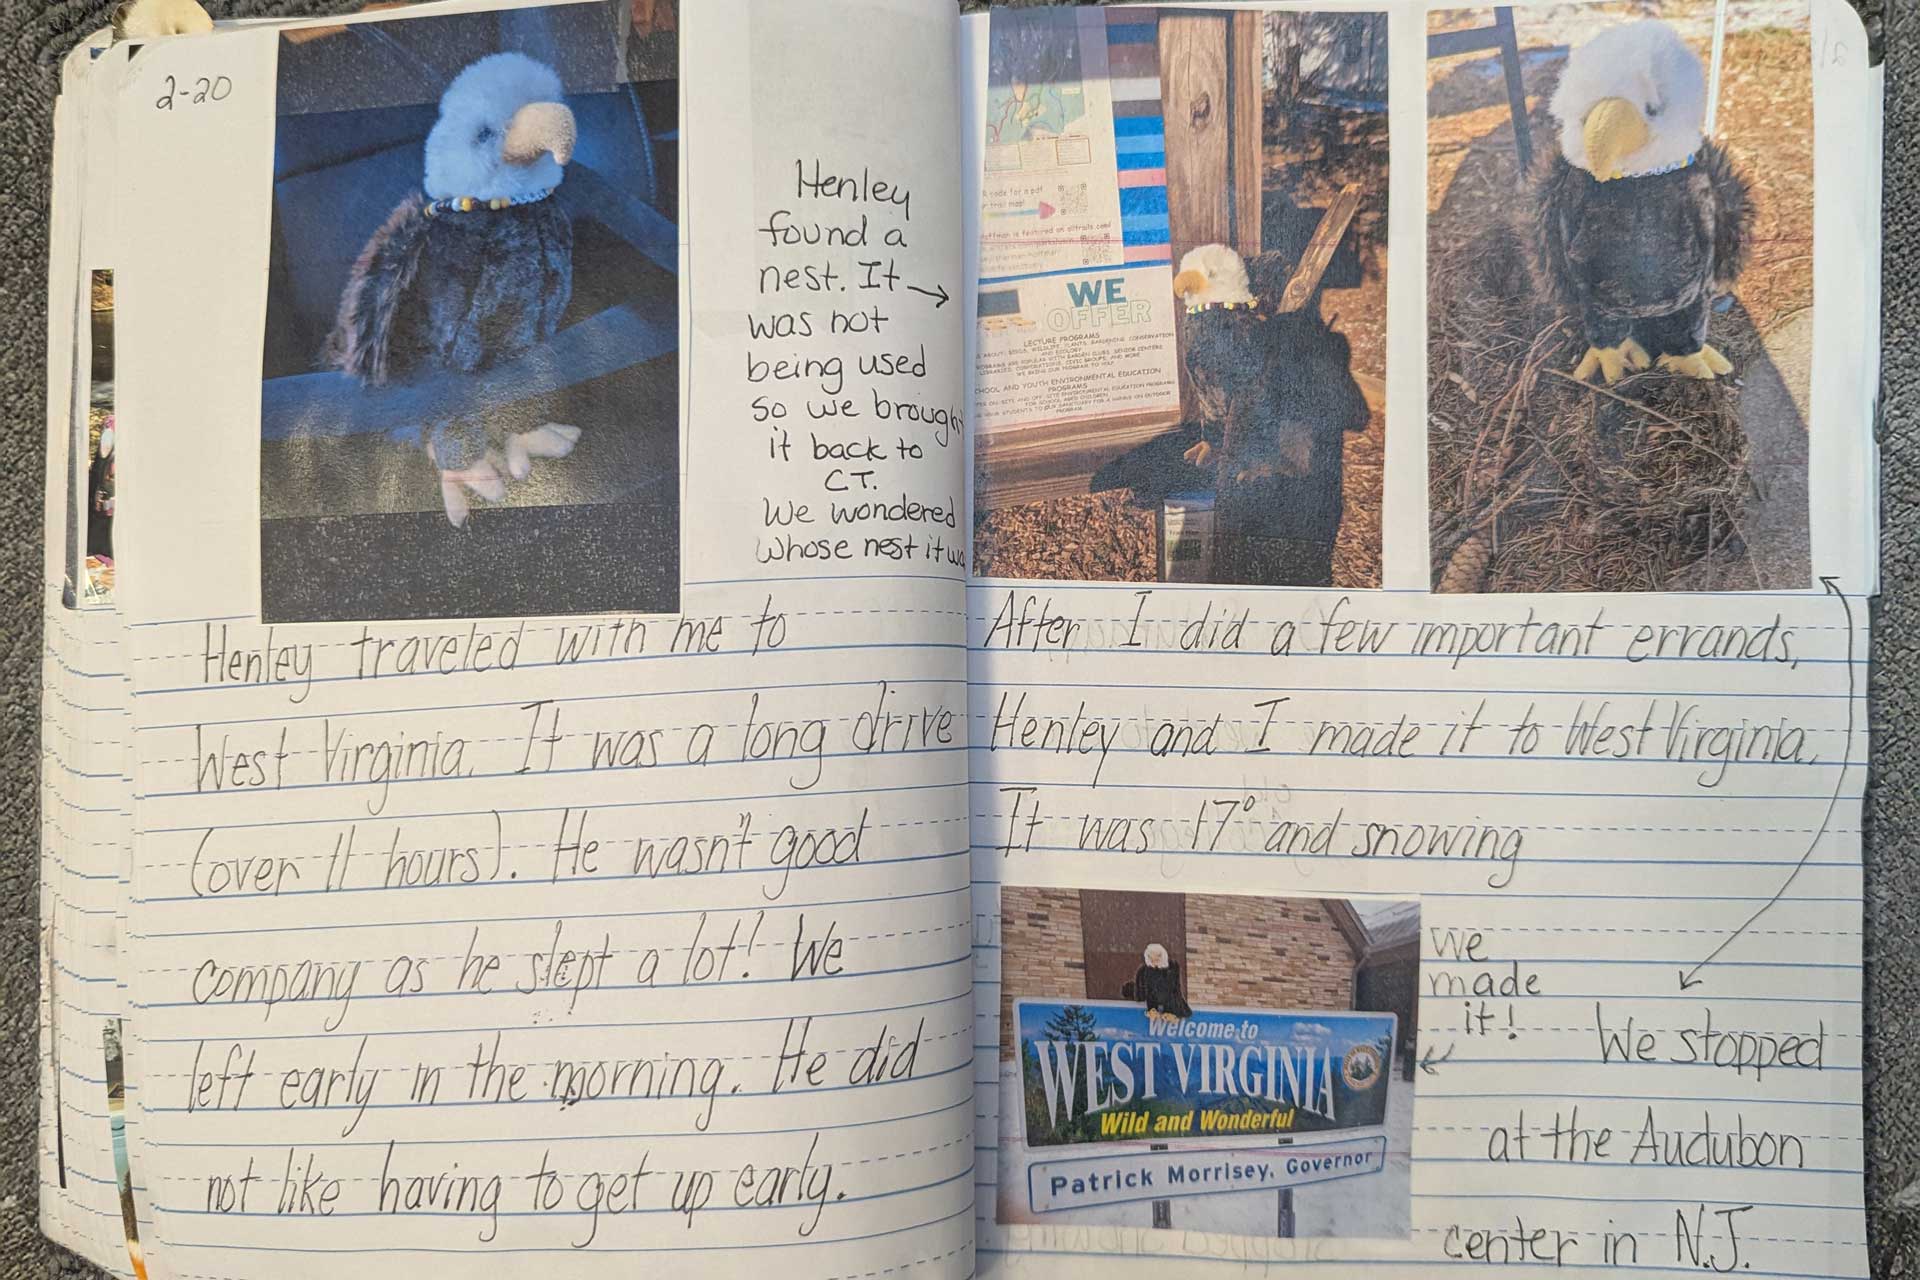 2-20
Henley
found a
nest. It
was not
being used
so we brought
it back to
CT.
We wondered
whose nest it wa
Henley traveled with me to
West Virginia. It was a long drive
(over 11 hours). He wasn't good
company as he slept a lot! We
left early in the morning. He did
not like having to get up early.
WE
OFFER
LECTURE PROGRAMS
SCHOOL AND YOUTH ENVIRONMENTAL EDUCATION
PROGRAMS
After I did a few important errands,
Henley and I made it to West Virginia.
It was 17° and snowing
Welcome to
WEST VIRGINIA
Wild and Wonderful
Patrick Morrisey, Governor
we
made
it!
We stopped
at the Audubon
center in N.J.